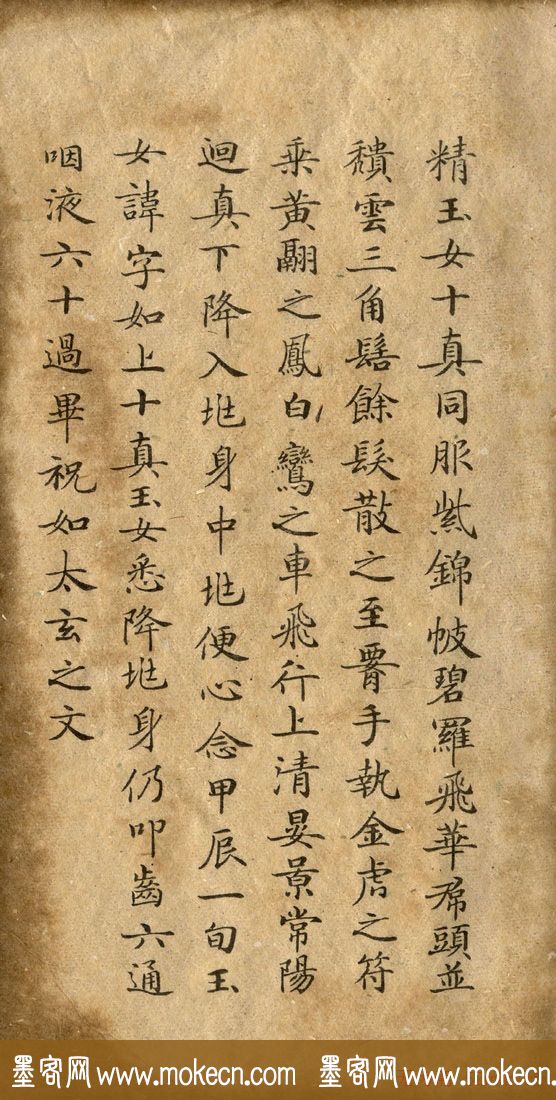 精玉女十真同服紫錦帔碧羅飛華帬頭並
穨雲三角髻餘髮散之至䏿手執金虎之符
乗黄翮之鳳白鸞之車飛行上清晏景常陽
迴真下降入𡉟身中𡉟便心念甲辰一旬玉
女諱字如上十真玉女悉降𡉟身仍叩齒六通
咽液六十過畢祝如太玄之文
墨客网 www.mokecn.com 墨客网 www.mokecn.com